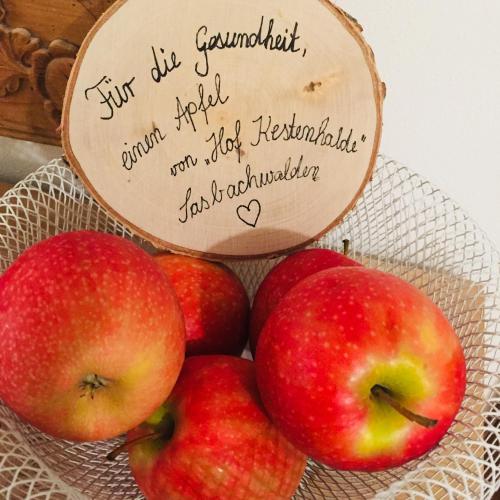 Für die Gesundheit,
einen Apfel
von „Hof Kestenhalde"
Sasbachwalden
♡